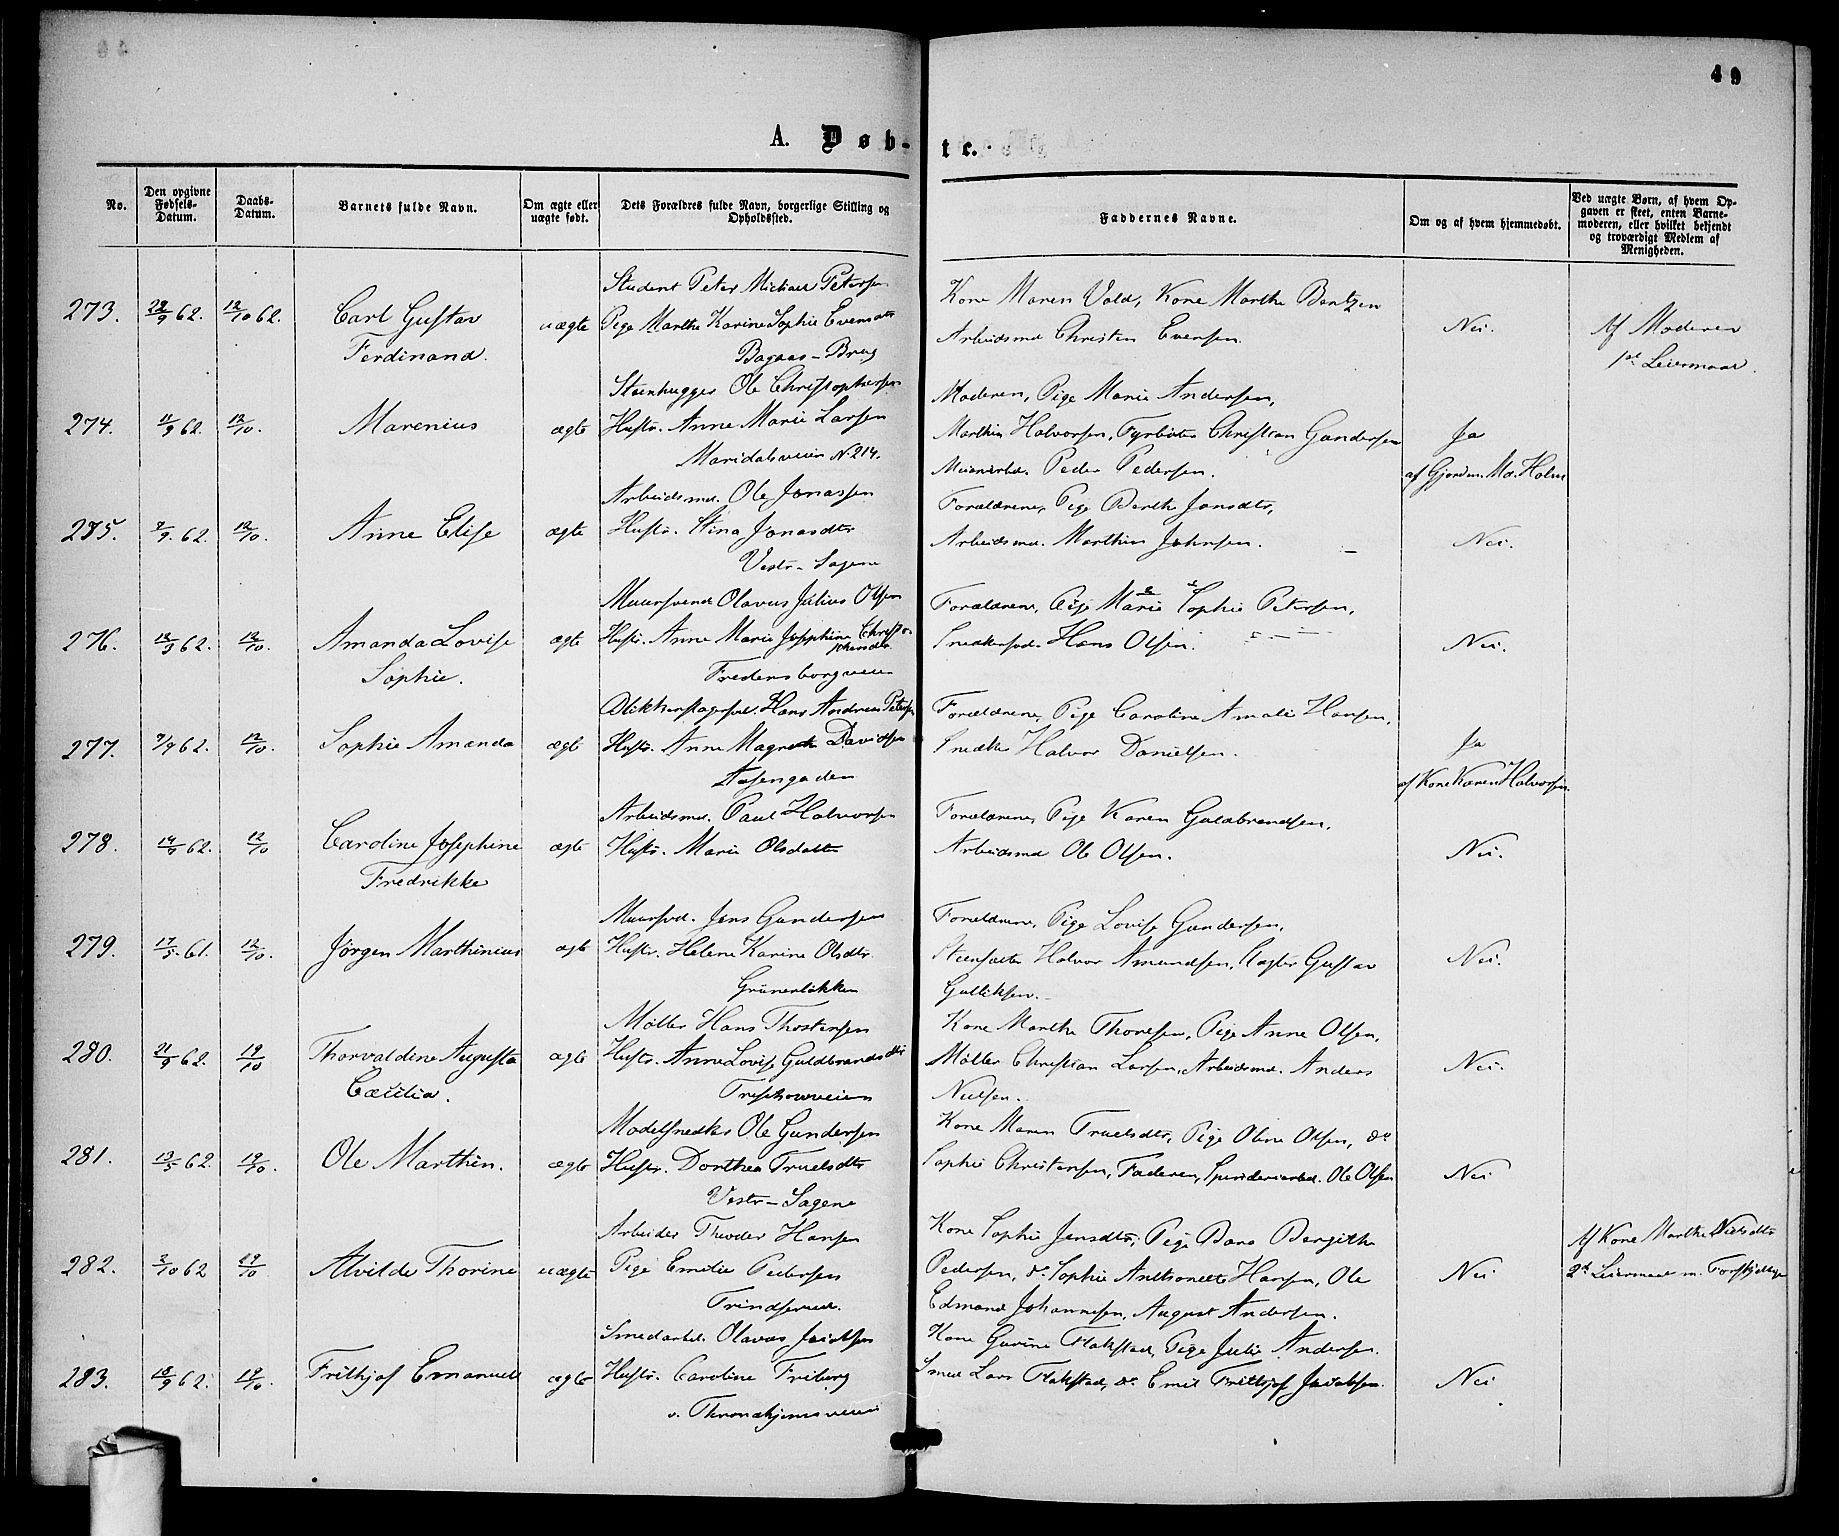 49
A. Døb-
te.
No.
Den opgivne Fødsels-Datum.
Daabs-Datum.
Barnets fulde Navn.
Om ægte eller uægte født.
Dets Forældres fulde Navn, borgerlige Stilling og Opholdssted.
Faddernes Navne.
Om og af hvem hjemmedøbt.
Ved uægte Børn, af hvem Opgaven er skeet, enten Barnemoderen, eller hvilket bekjendt og troværdigt Medlem af Menigheden.
Student Peter Michael Petersen
273. 28/9 62. 12/10 62. Carl Gustav uægte Pige Marthe Karine Sophie Evensdtr
Ferdinand. Bagaas-Brug
Kone Maren Vold, Kone Marthe Bentzen
Arbeidsmd Christen Evensen. Nei. Af Moderen
1ste Leiermaal.
Steenhugger Ole Christophersen
274. 11/9 62. 12/10. Marenius ægte Hustr. Anne Marie Larsen
Maridalsveien N. 214.
Moderen, Pige Marie Andersen,
Marthin Halvorsen, Fyrbøter Christian Gundersen Ja
Peder Pedersen. af Gjordm. Md. Holm
Arbeidsmd. Ole Jonassen
275. 7/9. 62. 12/10. Anne Elise ægte Hustr. Stina Jonasdtr
Vestr-Sagene
Forældrene, Pige Berthe Jonsdtr,
Arbeidsmd. Marthin Johnsen. Nei.
Muursvend Olavus Julius Olsen
276. 13/9 62. 12/10. Amanda Lovise ægte Hustr. Anne Marie Josephine Christophersdtr.
Sophie. Fredensborgveien
Forældrene, Pige Marie Sophie Petersen,
Snedkersvd. Hans Olsen. Nei.
Blikkenslagersvd. Hans Andreas Petersen
277. 7/9 62. 12/10. Sophie Amanda ægte Hustr. Anne Magrethe Davidsen
Aasengaden
Forældrene, Pige Caroline Amalie Hansen,
Snedker Halvor Danielsen. Ja
af Kone Karen Halvorsen.
Arbeidsmd. Paul Halvorsen
278. 14/9 62. 12/10 Caroline Josephine ægte Hustr. Marie Olsdatter
Fredrikke
Forældrene, Pige Karen Guldbrandsen,
Arbeidsmd Ole Olsen. Nei.
Muursvd. Jens Gundersen
279. 17/5. 61. 12/10. Jørgen Marthinius ægte Hustr. Helene Karine Olsdtr.
Grünerløkken
Forældrene, Pige Lovise Gundersen,
Halvor Amundsen, Gustav Nei.
Gulliksen.
Møller Hans Thostensen
280. 21/9 62. 19/10 Thorvaldine Augusta ægte Hustr. Anne Lovise Guldbrandsdtr
Cæcilia. Treschowveien
Kone Marthe Thoresen, Pige Anne Olsen,
Møller Christian Larsen, Arbeidsmd. Anders Nei.
Nielsen.
Modelsnedker Ole Gundersen
281. 13/5 62. 19/10. Ole Marthin. ægte Hustr. Dorthea Truelsdtr
Vestr-Sagene
Kone Maren Truelsdtr, Pige Oline Olsen, do
Sophie Christensen, Faderen, Spinderiarbd. Ole Olsen Nei
Arbeider Theodor Hansen
282. 2/10 62 19/10 Alvilde Thorine uægte Pige Emilie Pedersen
Trindserud.
Kone Sophie Jensdtr, Pige Bergithe
Pedersen, do. Sophie Antonette Hansen, Ole Nei
Edmand Johannesen, August Andersen.
Af Kone Marthe Nielsdtr
2d Leiermaal m. Forskjellige
Smedarbd. Olavus Jacobsen
283. 18/9 62. 19/10. Frithjof Emanuel ægte Hustr. Caroline Friberg
v. Throndhjemsveien
Kone Gurine Flakstad, Pige Julie Andersen.
Smed Lars Flakstad, do. Emil Frithjof Jacobsen. Nei